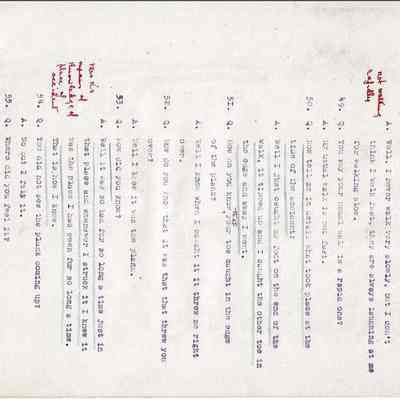 not walking
rapidly
A. Well, I never walk very slowly, but I don't
think I walk fast; they are always laughing at me
for walking slow.
49. Q. You say your usual walk is a rapid one?
A. My usual walk is not fast.
50. Q. Now tell me in detail what took place at the
time of the accident?
A. Well I just caught my foot on the end of the
walk, it threw up and I caught the other toe in
the edge and away I went.
51. Q. How do you know your toe caught in the edge
of the plank?
A. Well I know when I caught it it threw me right
over.
52. Q. How do you know that it was that that threw you
over?
A. Well I knew it was the plank.
53. Q. How did you know?
A. Well it was so bad for so long a time just in
that place and whenever I struck it I knew it
was the plank I had seen for so long a time.
That is how I knew.
his
means of
knowledge of
place of
accident
54. Q. You did not see the plank coming up?
A. No but I felt it.
55. Q. Where did you feel it?